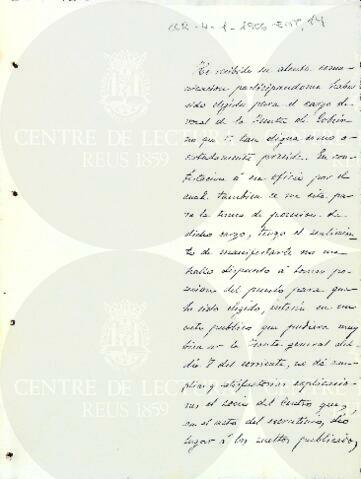 He recibido su atenta comu-
nicacion participandome haber
sido elegido para el cargo de
vocal de la Junta de Gobier-
no que V. tan digna como a-
certadamente preside. En con-
testacion á su oficio por el
cual tambien se me cita pa-
ra la toma de posesion de
dicho cargo, tengo el sentimien-
to de manifestarle no me
hallo dispuesto á tomar po-
sesion del puesto para que
he sido elegido, interin en un
acto publico que pudiera muy
bien ser la Junta general del
dia 8 del corriente, no dé am-
plias y satisfactorias explicacio-
nes el socio del Centro que,
en el acto del escrutinio, dió
lugar á los sueltos publicados,
CENTRE DE LECTURA
REUS 1859
CENTRE DE LECTURA
REUS 1859